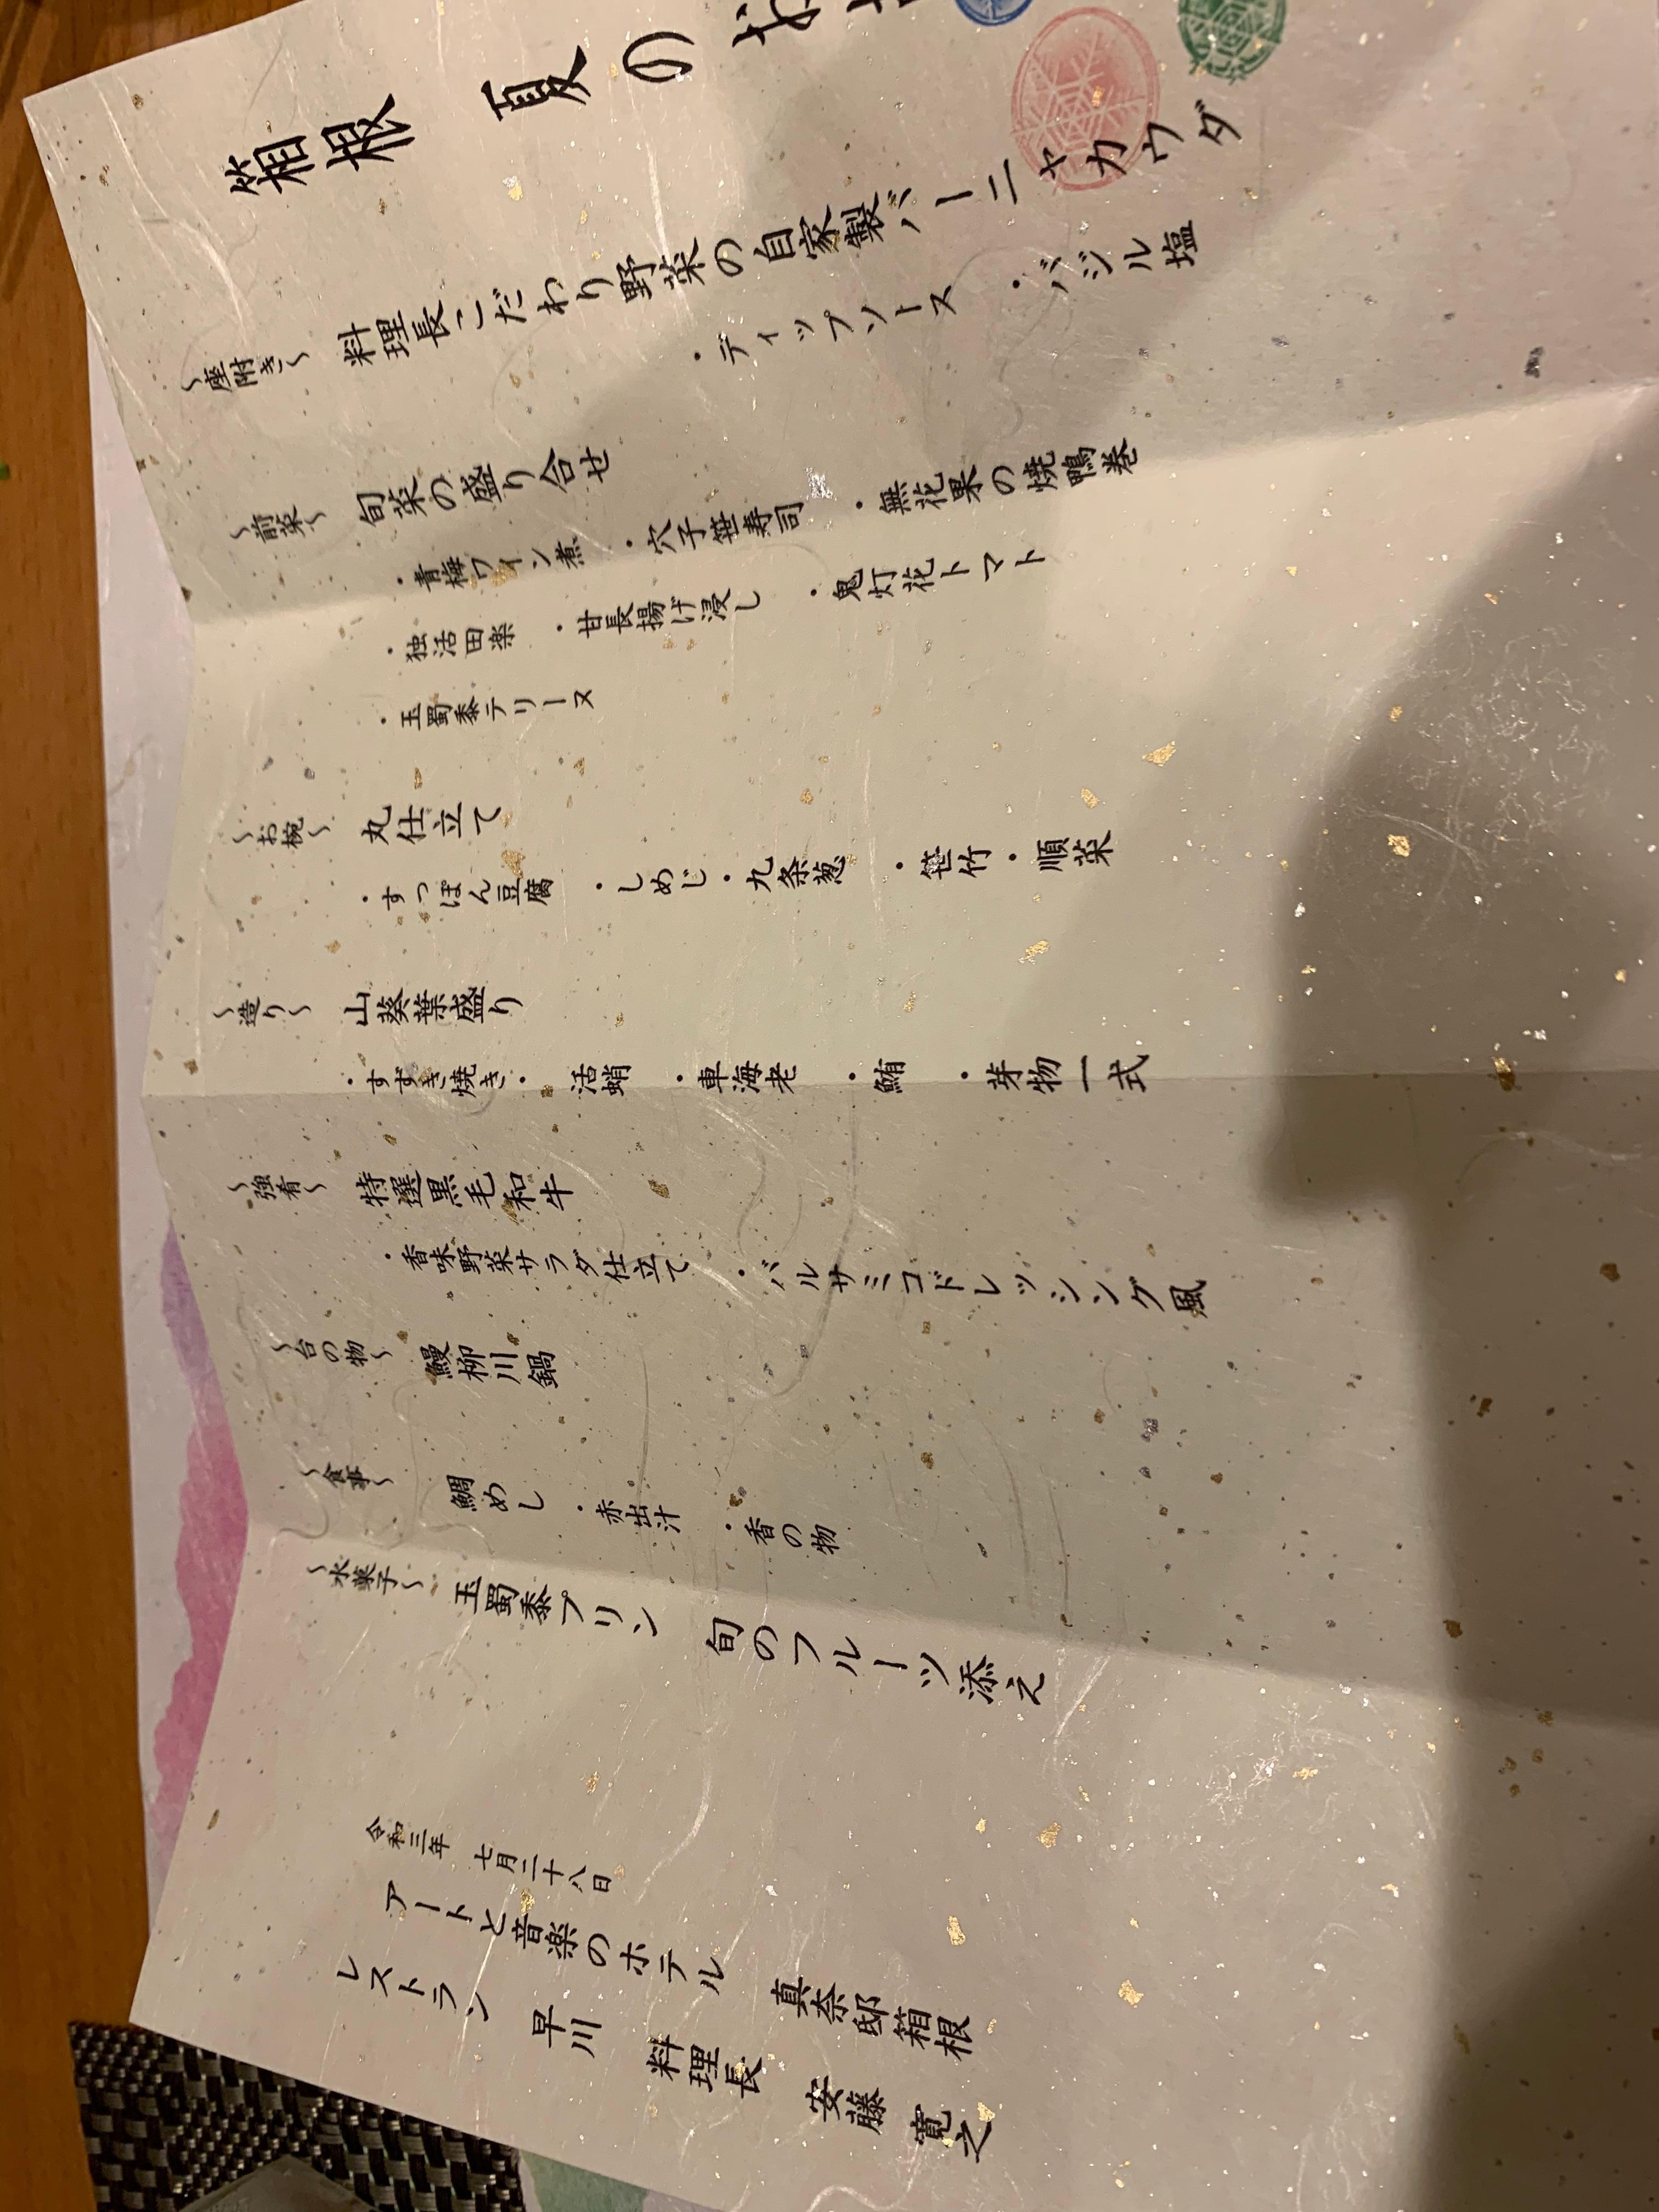 箱根　夏のお
～座附き～　料理長こだわり野菜の自家製バーニャカウダ
・ディップソース　・バジル塩
～前菜～　旬菜の盛り合せ
・青梅ワイン煮　・穴子笹寿司　・無花果の焼鴨巻
・独活田楽　・甘長揚げ浸し　・鬼灯花トマト
・玉蜀黍テリーヌ
～お椀～　丸仕立て
・すっぽん豆腐　・しめじ・九条葱　・笹竹・順菜
～造り～　山葵葉盛り
・すずき焼き・　活蛸　・車海老　・鮪　・芽物一式
～強肴～　特選黒毛和牛
・香味野菜サラダ仕立て　・バルサミコドレッシング風
～台の物～　鰻柳川鍋
～食事～　鯛めし　・赤出汁　・香の物
～水菓子～　玉蜀黍プリン　旬のフルーツ添え
令和三年　七月二十八日
アートと音楽のホテル　真奈邸箱根
レストラン　早川　料理長　安藤　寛之